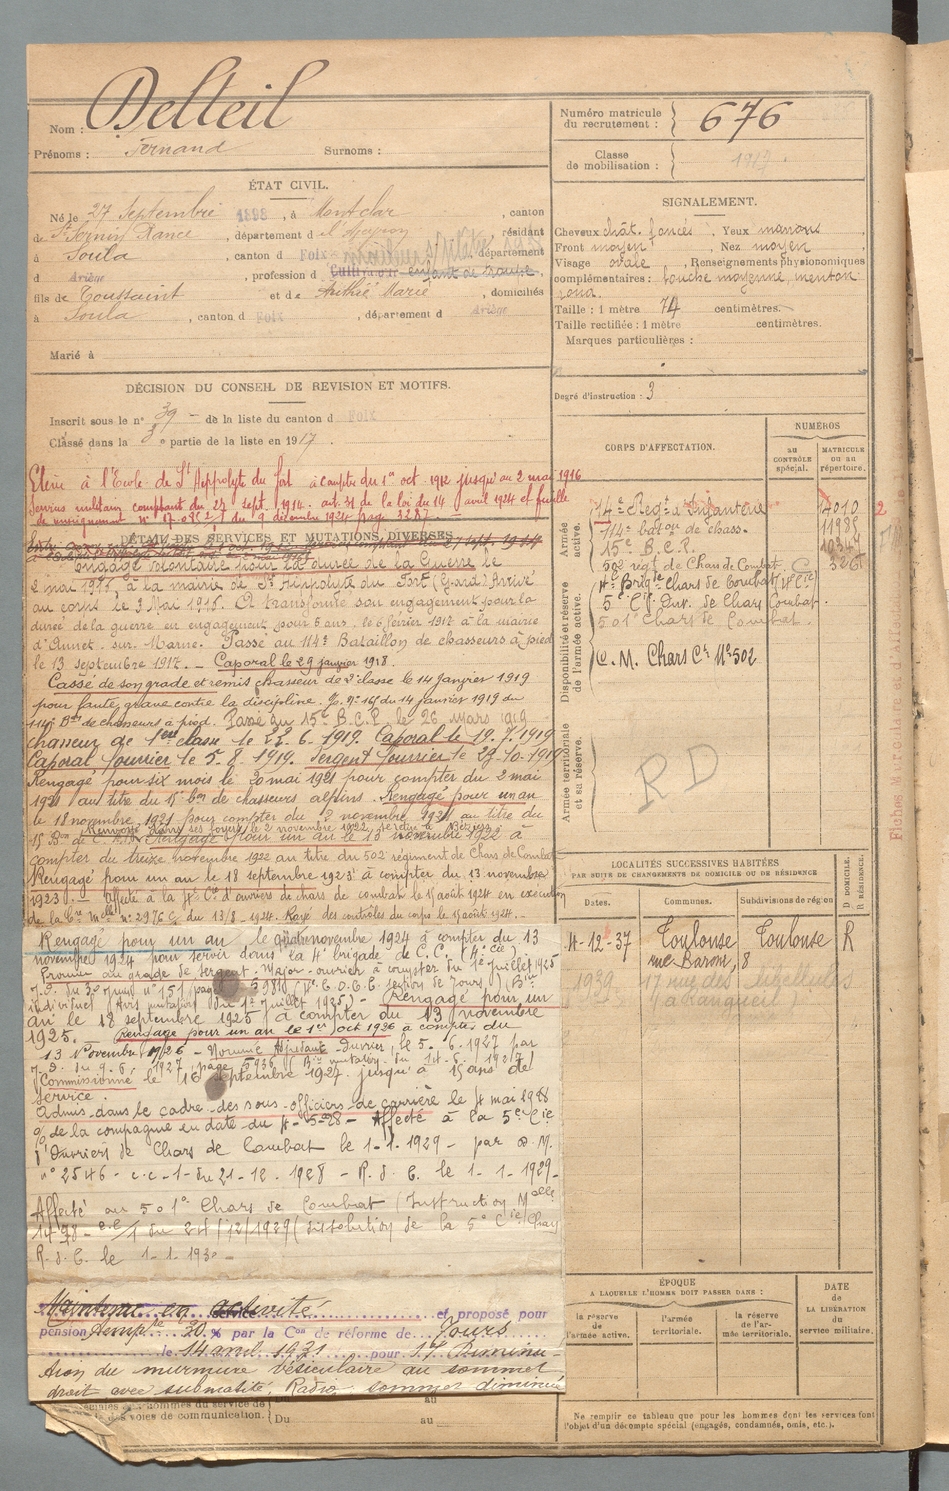 Nom : Delteil
Prénoms : Fernand Surnoms :
ÉTAT CIVIL.
Né le 27 Septembre 1898, à Montclar, canton
de St Sernin Rance, département d l'Aveyron, résidant
à Soula, canton d Foix, département
d Ariège, profession d Cultivateur enfant de troupe,
fils de Toussaint et de Marie, domiciliés
à Soula, canton d Foix, département d Ariège
Marié à
DÉCISION DU CONSEIL DE REVISION ET MOTIFS.
Inscrit sous le n° 39 de la liste du canton d Foix
Classé dans la 3e partie de la liste en 1917.
Elève à l'Ecole de St Hippolyte du fort à compter du 1er oct. 1912 jusqu'au 2 mai 1916
Services militair. comptant du 27 sept. 1914. art. 31 de la loi du 14 avril 1924 et feuille
de renseignement du 9 décembre 1924 page 3287.
DÉTAIL DES SERVICES ET MUTATIONS DIVERSES.
Engagé volontaire pour la durée de la Guerre le
2 mai 1916, à la mairie de St Hippolyte du Fort (Gard) Arrivé
au corps le 3 Mai 1916. A transformé son engagement pour la
durée de la guerre en engagement pour 5 ans le 6 février 1917 à la mairie
d'Annet sur Marne. Passé au 114e Bataillon de chasseurs à pied
le 13 septembre 1917. – Caporal le 29 janvier 1918.
Cassé de son grade et remis chasseur de 2e classe le 14 Janvier 1919
pour faute grave contre la discipline. du 14 janvier 1919 du
114e Bon de chasseurs à pied. Passé au 15e B.C.P. le 26 mars 1919
chasseur de 1ere classe le 22. 6. 1919. Caporal le 19. 7. 1919
Caporal fourrier le 5. 8. 1919. Sergent fourrier le 29. 10. 1919
Rengagé pour six mois le 20 mai 1921 pour compter du 2 mai
1921 au titre du 15e bon de chasseurs alpins. Rengagé pour un an
le 18 novembre 1921 pour compter du 2 novembre 1921 au titre du
15e Bon de C. Renvoyé dans ses foyers le 2 novembre 1922, se retire à
Rengagé pour un an le 10 novembre 1922 à
compter du treize novembre 1922 au titre du 502e régiment de Chars de Combat
Rengagé pour un an le 18 septembre 1923 à compter du 13 novembre
1923. – affecté à la 4e Cie d'ouvriers de chars de combat le 15 août 1924 en exécution
de la Cre Melle n° 2976 C/ du 13/8-1924. Rayé des contrôles du corps le 15 août 1924.
Rengagé pour un an le quatre novembre 1924 à compter du 13
novembre 1924 pour servir dans la 4e brigade de C.C. (4e Cie)
Promu au grade de sergent-Major-ouvrier à compter du 1er Juillet 1925
Rengagé pour un
an le 18 septembre 1925 à compter du 13 novembre
1925. – Rengagé pour un an le 1er oct 1926 à compter du
13 Novembre 1926 – Nommé Adjudant Ouvrier, le 5. 6. 1927 par
J.O. du 9. 6. 1927, page 5936
Commissionné le 16 septembre 1927 jusqu'à 15 ans de
service.
Admis dans le cadre des sous-officiers de carrière le 4 mai 1928
% de la compagnie en date du 4-5-28 – Affecté à la 5e Cie
d'Ouvriers de Chars de Combat le 1-1-1929 – par D. M.
n° 2546 – c.c. -1- du 21-12. 1928 – R. d. C. le 1-1-1929
Affecté au 501e Chars de Combat (Instruction Melle
1498 – c.c/1 du 24/12/1929 (dissolution de la 5e Cie/Chars)
R. d. C. le 1-1-1930 –
Maintenu en activité et proposé pour
pension temp. 30 % par la Con de réforme de Tours
le 14 avril 1931 pour 1°/ Diminu-
tion du murmure vésiculaire au sommet
droit avec submatité, Radio sommet diminué
des voies de communication. Du au
Numéro matricule du recrutement : 676
Classe de mobilisation : 1917
SIGNALEMENT.
Cheveux chât. foncés. Yeux marrons
Front moyen Nez moyen
Visage ovale, Renseignements physionomiques
complémentaires : bouche moyenne, menton
rond.
Taille : 1 mètre 74 centimètres.
Taille rectifiée : 1 mètre centimètres.
Marques particulières :
Degré d'instruction : 3
CORPS D'AFFECTATION.
NUMÉROS
AU CONTRÔLE spécial.
MATRICULE OU AU répertoire.
Armée active.
14e Régt d'Infanterie 7010
114e baton de chass. 11985
15e B.C.P. 10347
502e régt de Chars de Combat
4e Brigde chars de Combat (4e Cie)
Disponibilité et réserve de l'armée active.
5e Cie Ouv. de Chars Combat
501e Chars de Combat.
C. M. Chars Ct N° 502
Armée territoriale et sa réserve.
RD
LOCALITÉS SUCCESSIVES HABITÉES
PAR SUITE DE CHANGEMENTS DE DOMICILE OU DE RÉSIDENCE
Dates. Communes. Subdivisions de région D DOMICILE. R RÉSIDENCE.
4-12-37 Toulouse Toulouse R
rue Baront, 8
1939 17 rue des
(à Rangueil)
ÉPOQUE
A LAQUELLE L'HOMME DOIT PASSER DANS :
la réserve de l'armée active.
l'armée territoriale.
la réserve de l'armée territoriale.
DATE de LA LIBÉRATION du service militaire.
Ne remplir ce tableau que pour les hommes dont les services font
l'objet d'un décompte spécial (engagés, condamnés, omis, etc.).